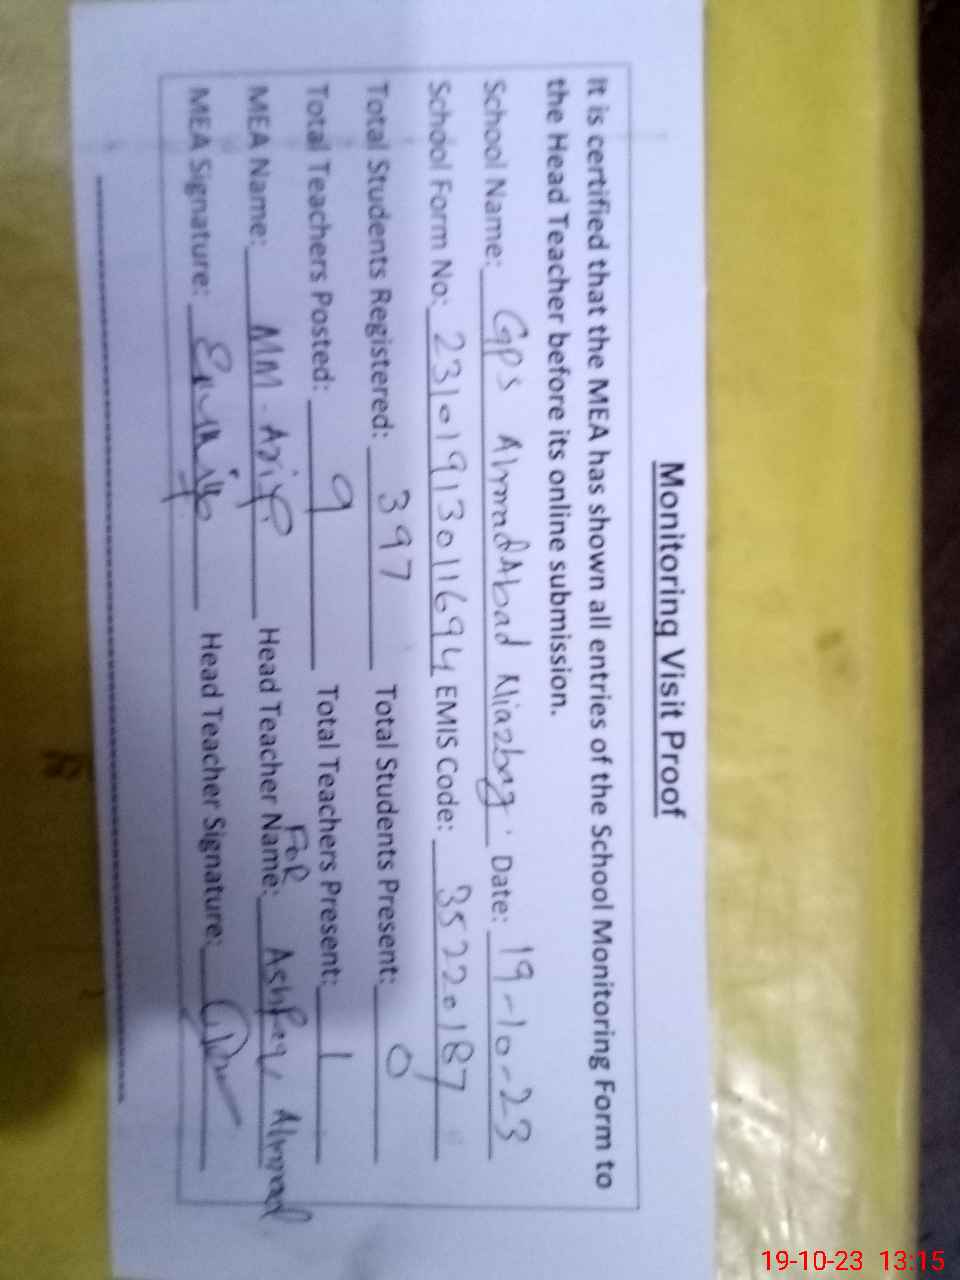 Monitoring Visit Proof
It is certified that the MEA has shown all entries of the School Monitoring Form to
the Head Teacher before its online submission.
School Name: GPS Ahmad Abad Niazbag Date: 19-10-23
School Form No: 23101913011694 EMIS Code: 35220187
Total Students Registered: 397 Total Students Present: 0
Total Teachers Posted: 9 Total Teachers Present: 1
MEA Name: MM-Asif Head Teacher Name: FOR Ashfaq Ahmad
MEA Signature: Head Teacher Signature:
19-10-23 13:15